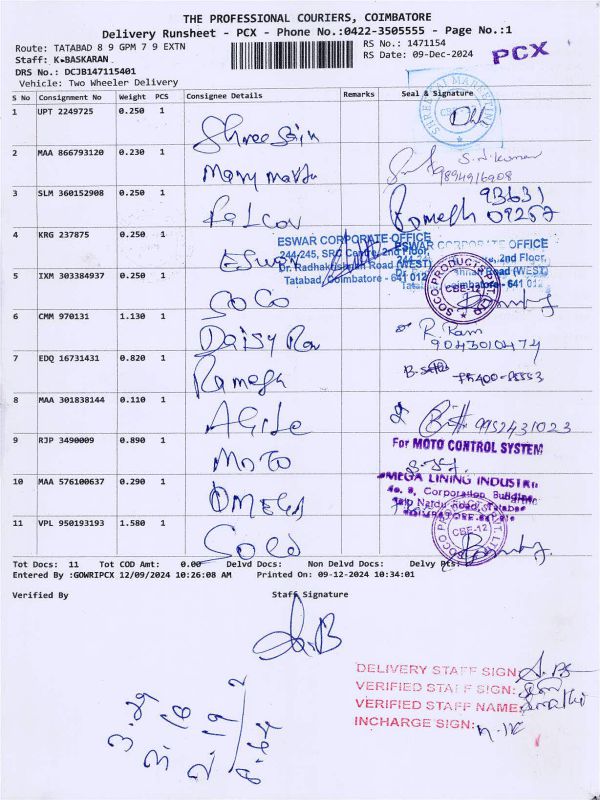 THE PROFESSIONAL COURIERS, COIMBATORE
Delivery Runsheet - PCX - Phone No.:0422-3505555 - Page No.:1
Route: TATABAD 8 9 GPM 7 9 EXTN
RS No.: 1471154
PCX
Staff: K.BASKARAN
RS Date: 09-Dec-2024
DRS No.: DCJB147115401
Vehicle: Two Wheeler Delivery
S No Consignment No Weight PCS Consignee Details Remarks Seal & Signature
1 UPT 2249725 0.250 1 Shree Sain
2 MAA 866793120 0.230 1 S.N.kumar
9894916908
3 SLM 360152908 0.250 1 Falcon Ramesh 93631
09257
4 KRG 237875 0.250 1 ESWAR
ESWAR CORPORATE OFFICE
244-245, SRC Centre, 2nd Floor,
Dr. Radhakrishnan Road (WEST)
Tatabad, Coimbatore - 641 012
5 IXM 303384937 0.250 1 SOCO
SOCO PRODUCTS PVT LTD
CBE-12
6 CMM 970131 1.130 1 Daisy R. Ram
9043010474
7 EDQ 16731431 0.820 1 Ramesh
8 MAA 301838144 0.110 1 Agile 9952431023
9 RJP 3490009 0.890 1 MOTO
For MOTO CONTROL SYSTEM
10 MAA 576100637 0.290 1 OMEGA
OMEGA LINING INDUSTRI
No. 9, Corporation Building
11 VPL 950193193 1.580 1 Soco
CBE-12
Tot Docs: 11 Tot COD Amt: 0.00 Delvd Docs: Non Delvd Docs: Delvy Pts:
Entered By :GOWRIPCX 12/09/2024 10:26:08 AM Printed On: 09-12-2024 10:34:01
Verified By Staff Signature
DELIVERY STAFF SIGN:
VERIFIED STAFF SIGN:
VERIFIED STAFF NAME:
INCHARGE SIGN: